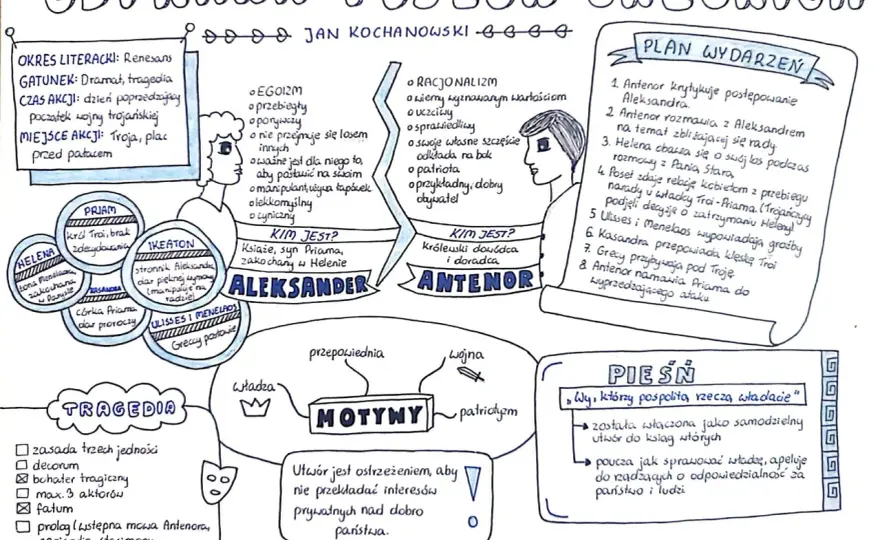 ODPRAWA POSŁÓW GRECKICH
JAN KOCHANOWSKI
OKRES LITERACKI: Renesans
GATUNEK: Dramat, tragedia
CZAS AKCJI: dzień poprzedzający
początek wojny trojańskiej
MIEJSCE AKCJI: Troja, plac
przed pałacem
EGOIZM
przebiegły
porywczy
nie przejmuje się losem
innych
ważne jest dla niego to,
aby postawić na swoim
manipulant, używa łapówek
lekkomyślny
cyniczny
KIM JEST?
Książę, syn Priama,
zakochany w Helenie
ALEKSANDER
RACJONALIZM
wierny wyznawanym wartościom
uczciwy
sprawiedliwy
swoje własne szczęście
odkłada na bok
patriota
przykładny, dobry
obywatel
KIM JEST?
Królewski dowódca
i doradca
ANTENOR
PLAN WYDARZEŃ
1. Antenor krytykuje postępowanie
Aleksandra.
2 Antenor rozmawia z Aleksandrem
na temat zbliżającej się rady
3. Helena obawia się o swój los podczas
rozmowy z Panią Starą,
4. Poseł zdaje relację kobietom z przebiegu
narady u władcy Troi - Priama. (Trojańczycy
podjęli decyzję o zatrzymaniu Heleny)
5 Ulisses i Menelaos wypowiadają groźby
6. Kasandra przepowiada klęskę Troi
7. Grecy przybywają pod Troję
8 Antenor namawia Priama do
wyprzedzającego ataku
PRIAM
król Troi, brak
zdecydowania
HELENA
żona Menelaosa,
zakochana
w Parysie
IKEATON
stronnik Aleksandra,
dar pięknej wymowy
(manipuluje na
radzie)
KASANDRA
córka Priama
dar proroczy
ULISSES I MENELAOS
Greccy posłowie
przepowiednia
wojna
władza
patriotyzm
MOTYWY
TRAGEDIA
zasada trzech jedności
decorum
bohater tragiczny
max. 3 aktorów
fatum
prolog (wstępna mowa Antenora,
Utwór jest ostrzeżeniem, aby
nie przekładać interesów
prywatnych nad dobro
państwa.
PIEŚŃ
„Wy, którzy pospolitą rzeczą władacie"
została włączona jako samodzielny
utwór do ksiąg wtórych
poucza jak sprawować władzę, apeluje
do rządzących o odpowiedzialność za
państwo i ludzi